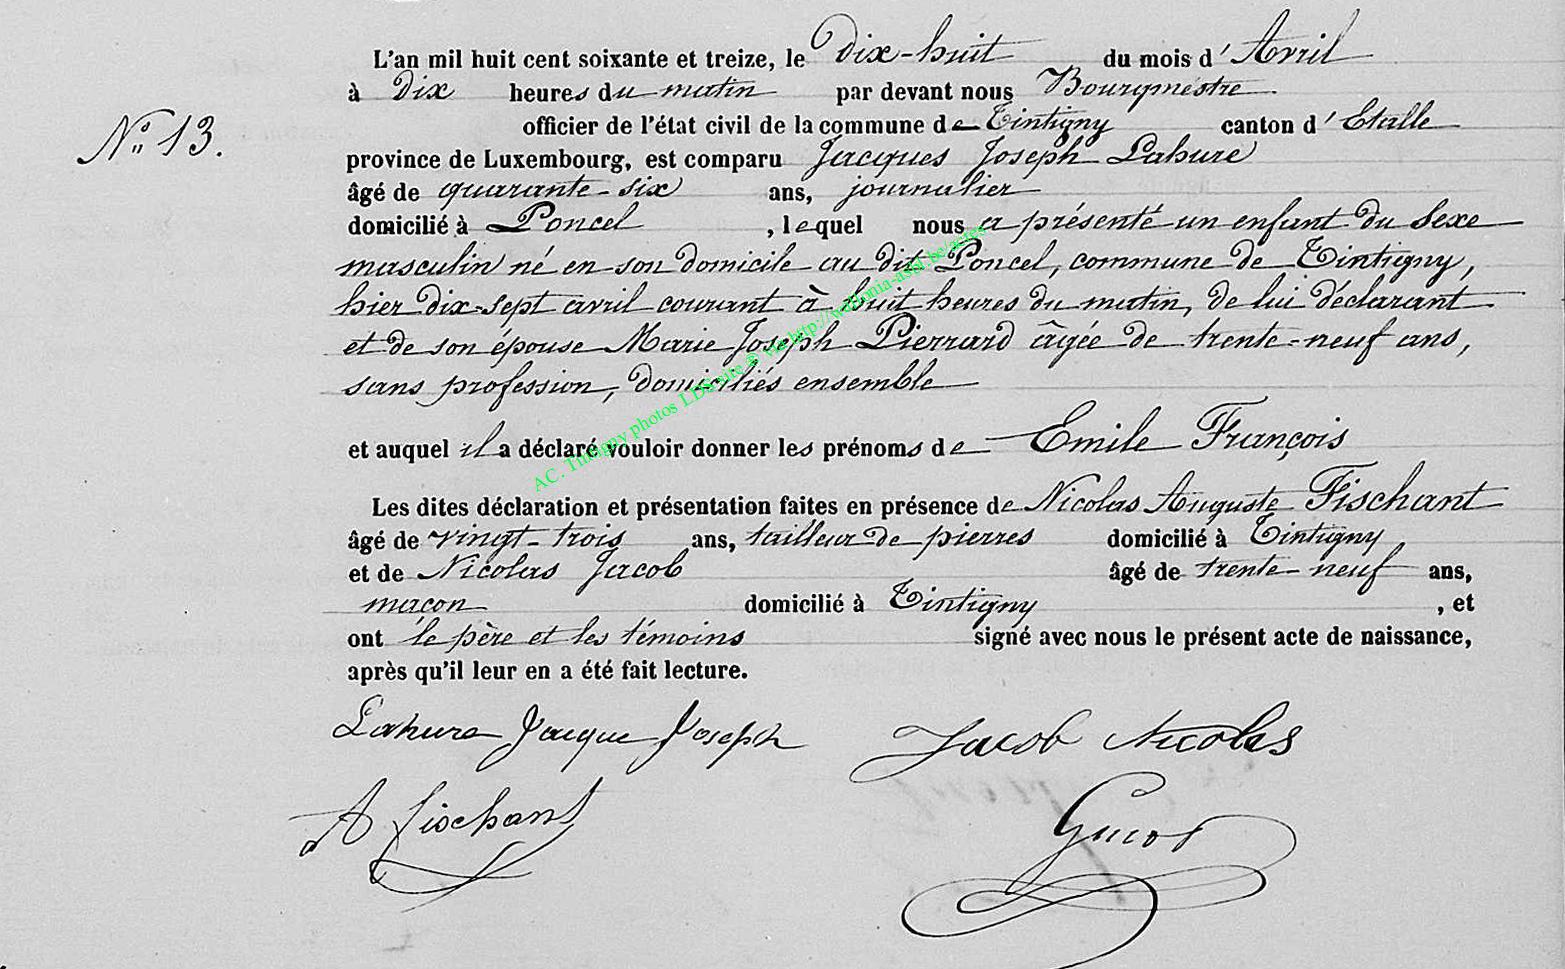 L'an mil huit cent soixante et treize, le dix-huit du mois d'Avril
à dix heures du matin par devant nous Bourgmestre
N° 13.
officier de l'état civil de la commune de Tintigny canton d'Etalle
province de Luxembourg, est comparu Jacques Joseph Lahure
âgé de quarante-six ans, journalier
domicilié à Poncel, lequel nous a présenté un enfant du sexe
masculin né en son domicile au dit Poncel, commune de Tintigny,
hier dix-sept avril courant à huit heures du matin, de lui déclarant
et de son épouse Marie Joseph Pierrard âgée de trente-neuf ans,
sans profession, domiciliés ensemble
et auquel il a déclaré vouloir donner les prénoms de Emile François
Les dites déclaration et présentation faites en présence de Nicolas Auguste Fischant
âgé de vingt-trois ans, tailleur de pierres domicilié à Tintigny
et de Nicolas Jacob âgé de trente-neuf ans,
maçon domicilié à Tintigny, et
ont le père et les témoins signé avec nous le présent acte de naissance,
après qu'il leur en a été fait lecture.
Lahure Jacque Joseph Jacob Nicolas
A fischant
AC. Tintigny photos LDS aile © via http://wallonia-asbl.be/actes